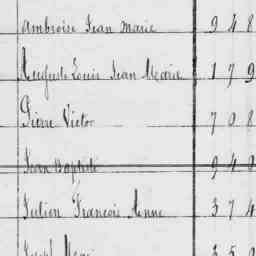 Ambroise Jean Marie 9 4 8
Auguste Louis Jean Marie 1 7 9
Pierre Victor 7 0 8
Jean Baptiste 9 4 0
Julien François Anne 3 7 4
Joseph 3 5